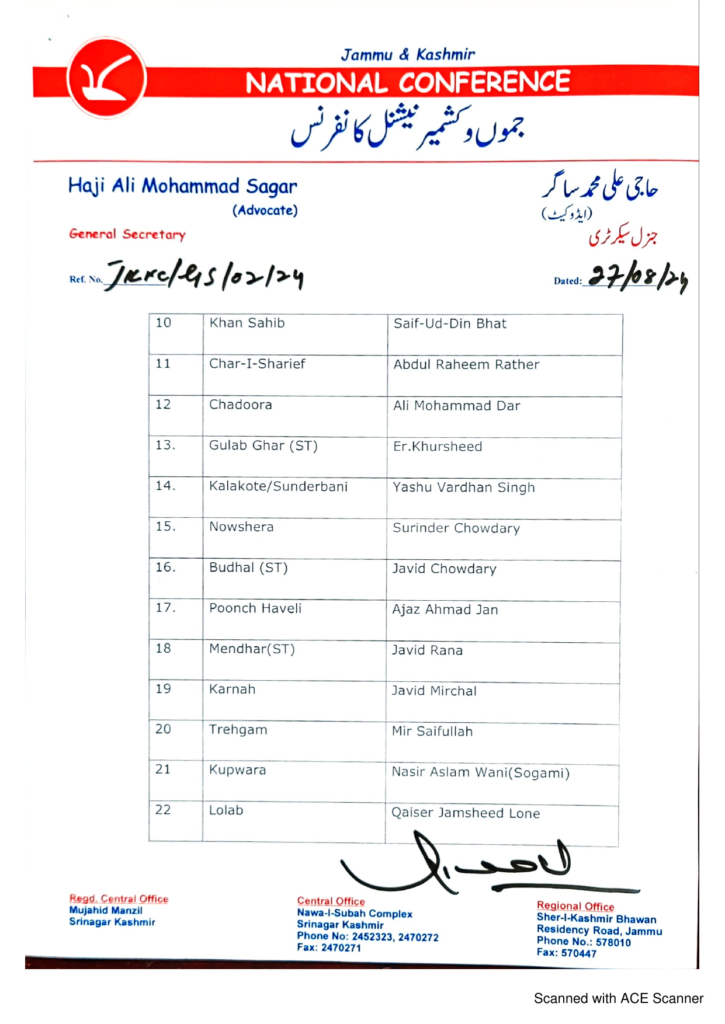 Jammu & Kashmir
NATIONAL CONFERENCE
جموں و کشمیر نیشنل کانفرنس
Haji Ali Mohammad Sagar
(Advocate)
General Secretary
حاجی علی محمد ساگر
(ایڈوکیٹ)
جنرل سیکرٹری
Ref. No. JKNC/GS/02/24
Dated: 27/08/24
10 Khan Sahib Saif-Ud-Din Bhat
11 Char-I-Sharief Abdul Raheem Rather
12 Chadoora Ali Mohammad Dar
13. Gulab Ghar (ST) Er.Khursheed
14. Kalakote/Sunderbani Yashu Vardhan Singh
15. Nowshera Surinder Chowdary
16. Budhal (ST) Javid Chowdary
17. Poonch Haveli Ajaz Ahmad Jan
18 Mendhar(ST) Javid Rana
19 Karnah Javid Mirchal
20 Trehgam Mir Saifullah
21 Kupwara Nasir Aslam Wani(Sogami)
22 Lolab Qaiser Jamsheed Lone
Regd. Central Office
Mujahid Manzil
Srinagar Kashmir
Central Office
Nawa-I-Subah Complex
Srinagar Kashmir
Phone No: 2452323, 2470272
Fax: 2470271
Regional Office
Sher-I-Kashmir Bhawan
Residency Road, Jammu
Phone No.: 578010
Fax: 570447
Scanned with ACE Scanner